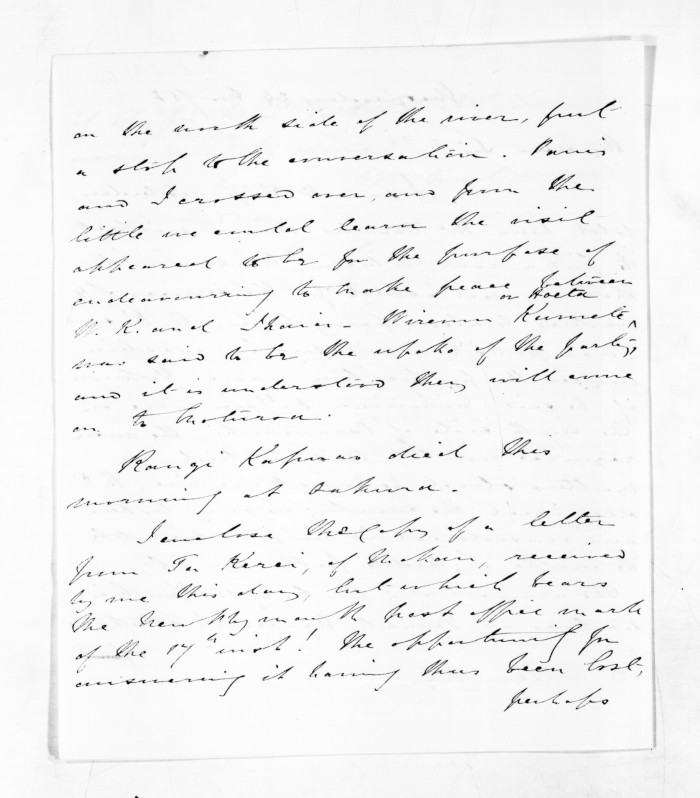 on the north side of the river, put
a stop to the conversation. Parris
and I crossed over, and from the
little we could learn the visit
appeared to be for the purpose of
endeavouring to make peace between
W. K. and Ihaia - Wiremu Kumete, or Hoeta
was said to be the upoko of the party,
and it is understood they will come
on to
Rangi died this
morning at
I enclose the Copy of a letter
from Te Kerei, of received
by me this day, but which bears
the New Plymouth post office mark
of the 17th inst! The opportunity for
answering it having thus been lost,
perhaps